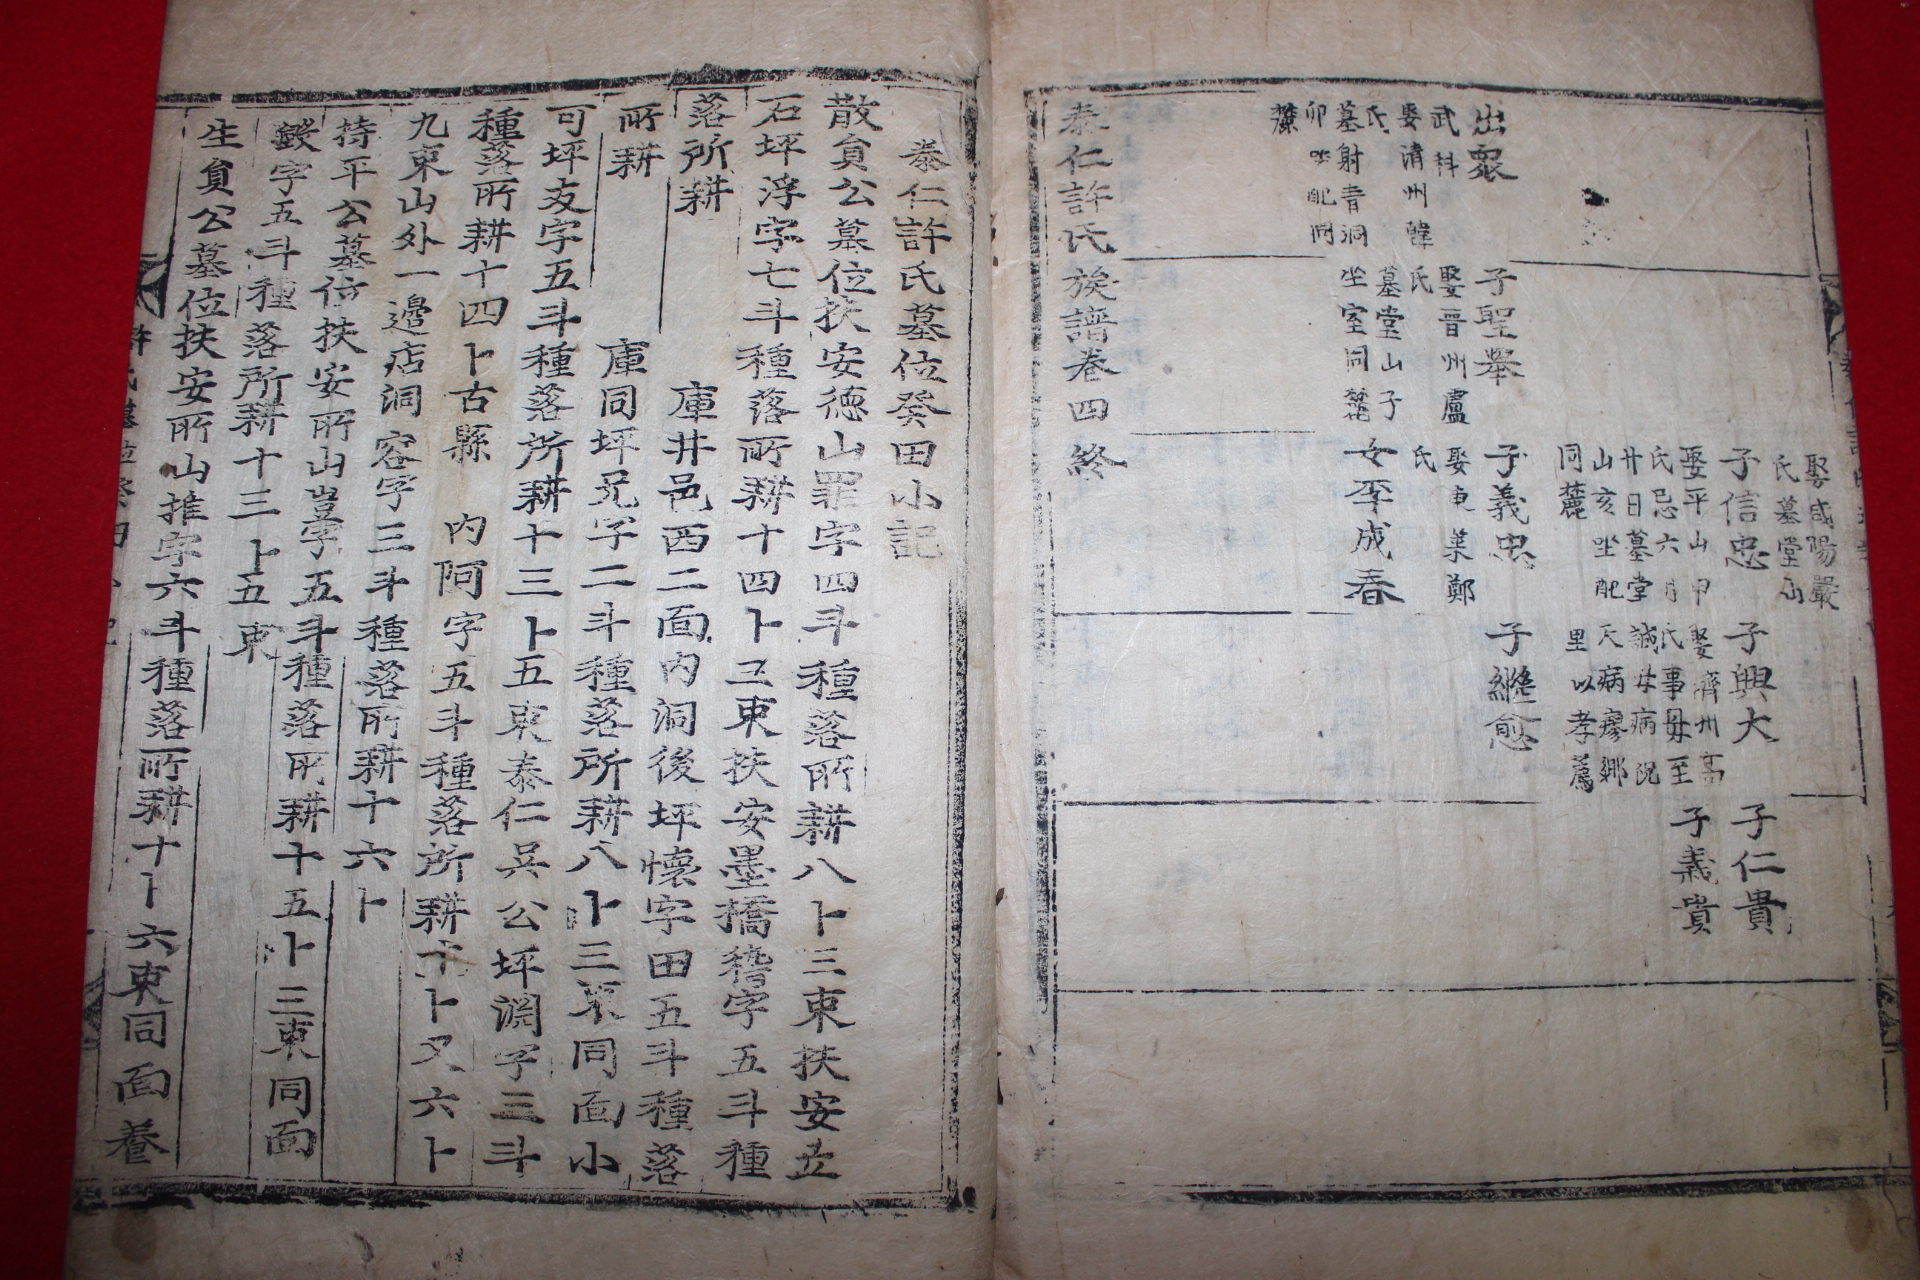 娶咸陽嚴
氏墓堂山
子信忠
娶平山申
氏忌六月
廿日墓堂
山亥坐配
同麓
子興大
娶濟州高
氏事母至
誠母病
天病瘳鄉
里以孝薦
子仁貴
子義貴
出衆
武科
娶淸州韓
氏
墓射靑洞
卯坐配同
麓
子聖擧
娶晋州盧
氏
墓堂山子
坐室同麓
子義忠
娶東萊鄭
氏
子繼愈
女李成春
泰仁許氏族譜卷四終
泰仁許氏墓位癸田小記
散貟公墓位扶安德山罪字四斗種落所耕八卜三束扶安立
石坪浮字七斗種落所耕十四卜二束扶安墨橋稽字五斗種
落所耕 庫井邑西二面內洞後坪懷字田五斗種落
所耕 庫同坪兄字二斗種落所耕八卜三束同面小
可坪友字五斗種落所耕十三卜五束泰仁吳公坪淵字三斗
種落所耕十四卜古縣 內阿字五斗種落所耕十卜又六卜
九束山外一邊店洞容字三斗種落所耕十六卜
持平公墓位扶安所山豈字五斗種落所耕十五卜三束同面
字五斗種落所耕十三卜五束
生貟公墓位扶安所山推字六斗種落所耕十卜六束同面養